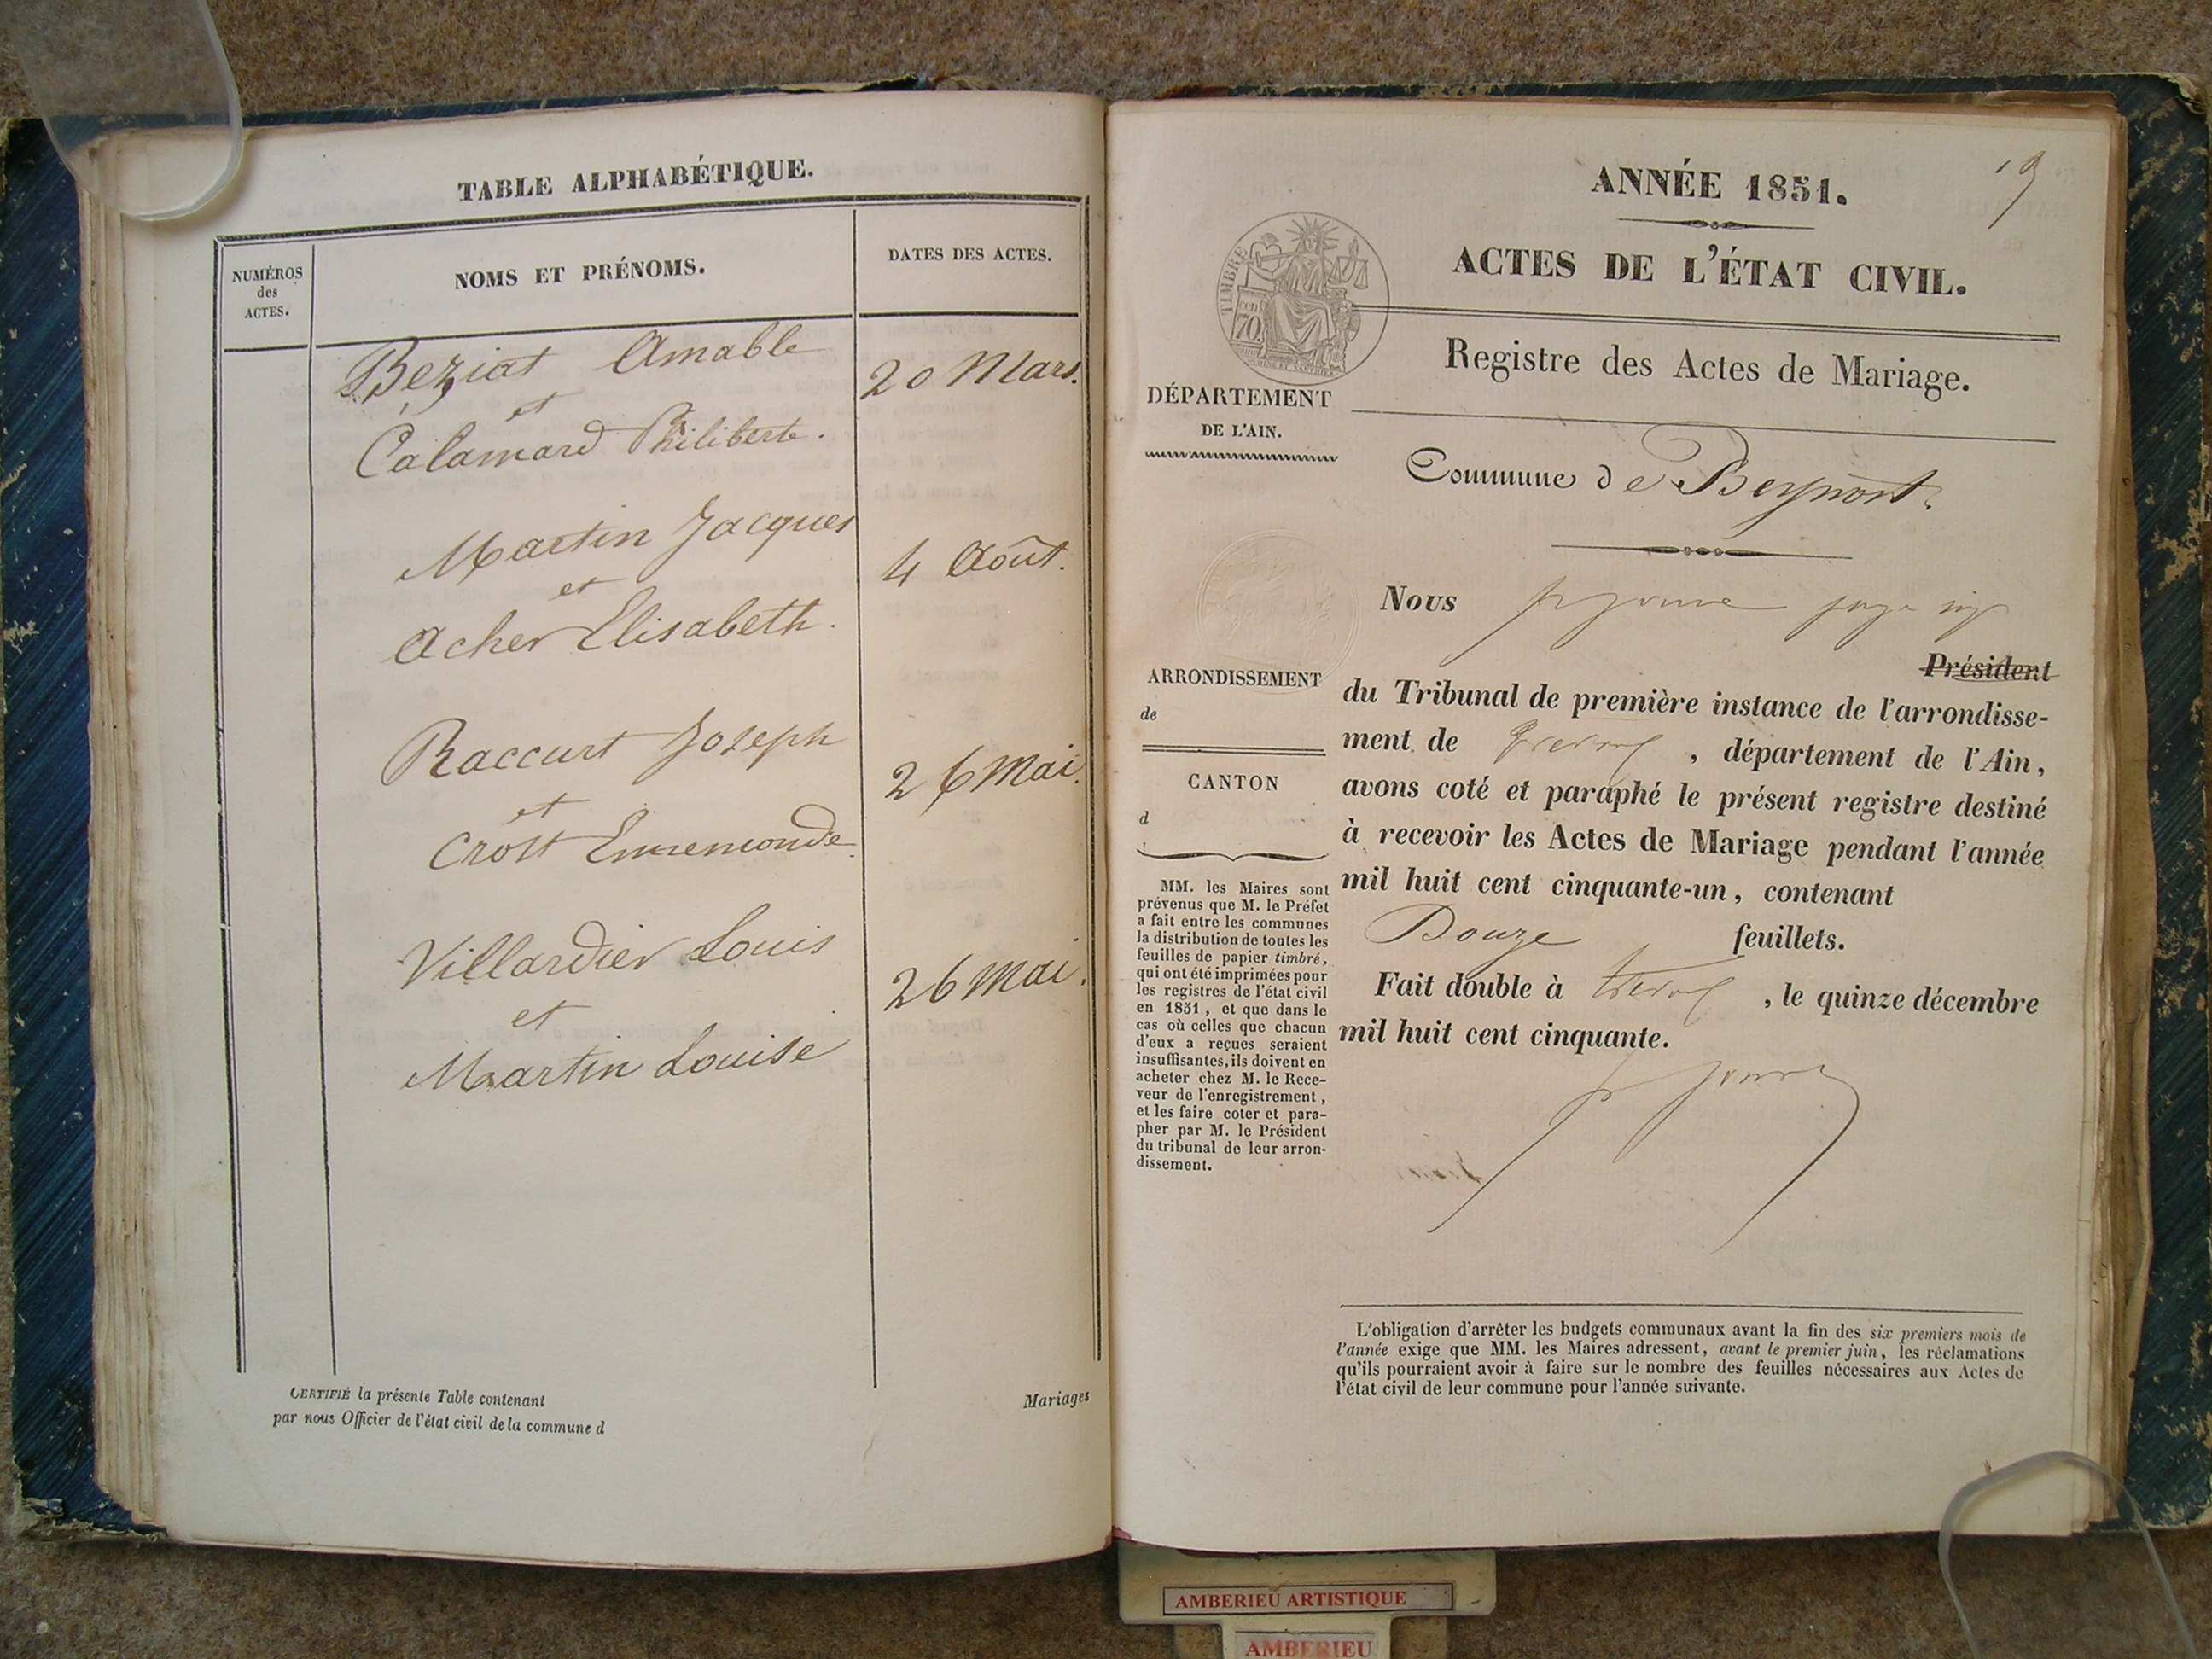 TABLE ALPHABÉTIQUE.
NUMÉROS
des
ACTES.
NOMS ET PRÉNOMS.
DATES DES ACTES.
Beziat Amable
20 Mars.
et
Calamard Philiberte.
Martin Jacques
4 Août.
et
Acher Elisabeth.
Raccurt Joseph
26 Mai.
et
Crost Ennemonde.
Villardier Louis
26 Mai.
et
Martin Louise
CERTIFIÉ la présente Table contenant
Mariages
par nous Officier de l'état civil de la commune d
19
ANNÉE 1851.
ACTES DE L'ÉTAT CIVIL.
TIMBRE
70
Registre des Actes de Mariage.
DÉPARTEMENT
DE L'AIN.
Commune de Beynost.
Nous
Président
ARRONDISSEMENT
de
CANTON
d
du Tribunal de première instance de l'arrondisse-
ment de Trévoux, département de l'Ain,
avons coté et paraphé le présent registre destiné
à recevoir les Actes de Mariage pendant l'année
mil huit cent cinquante-un, contenant
Douze feuillets.
Fait double à Trévoux, le quinze décembre
mil huit cent cinquante.
MM. les Maires sont
prévenus que M. le Préfet
a fait entre les communes
la distribution de toutes les
feuilles de papier timbré,
qui ont été imprimées pour
les registres de l'état civil
en 1851, et que dans le
cas où celles que chacun
d'eux a reçues seraient
insuffisantes, ils doivent en
acheter chez M. le Rece-
veur de l'enregistrement,
et les faire coter et para-
pher par M. le Président
du tribunal de leur arron-
dissement.
L'obligation d'arrêter les budgets communaux avant la fin des six premiers mois de
l'année exige que MM. les Maires adressent, avant le premier juin, les réclamations
qu'ils pourraient avoir à faire sur le nombre des feuilles nécessaires aux Actes de
l'état civil de leur commune pour l'année suivante.
AMBERIEU ARTISTIQUE
AMBERIEU